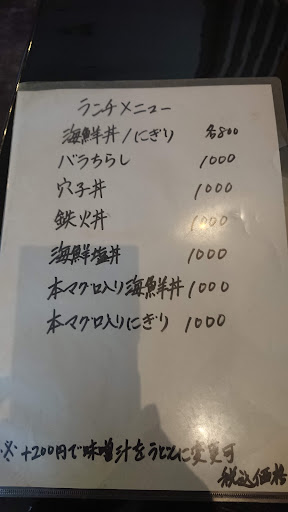 ランチメニュー
海鮮丼/にぎり 各800
バラちらし 1000
穴子丼 1000
鉄火丼 1000
海鮮塩丼 1000
本マグロ入り海鮮丼 1000
本マグロ入りにぎり 1000
※ +200円で味噌汁をうどんに変更可
税込価格